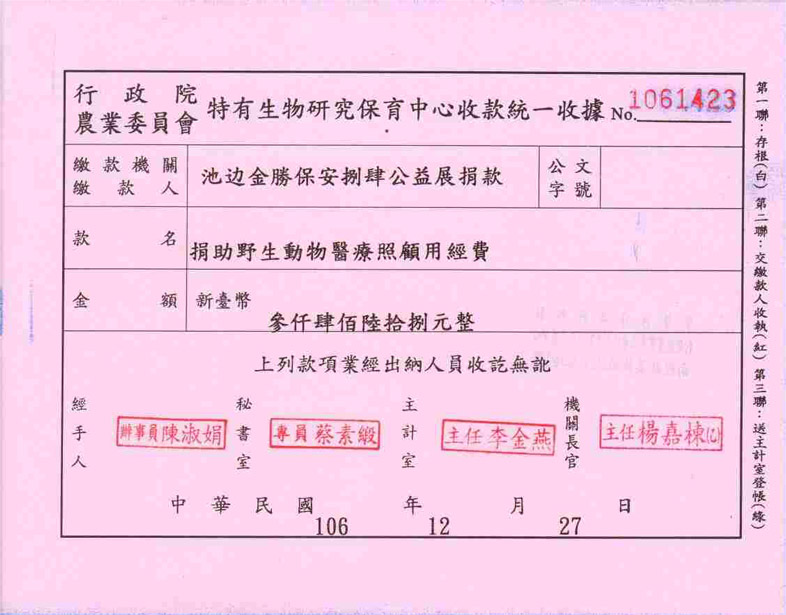 行政院
農業委員會
特有生物研究保育中心收款統一收據 No. 1061423
繳款機關
繳款人
池边金勝保安捌肆公益展捐款
公文
字號
款名
捐助野生動物醫療照顧用經費
金額
新臺幣
參仟肆佰陸拾捌元整
上列款項業經出納人員收訖無訛
經手人
辦事員陳淑娟
秘書室
專員蔡素緞
主計室
主任李金燕
機關長官
主任楊嘉棟
中華民國 106 年 12 月 27 日
第一聯：存根（白）第二聯：交繳款人收執（紅）第三聯：送主計室登帳（綠）